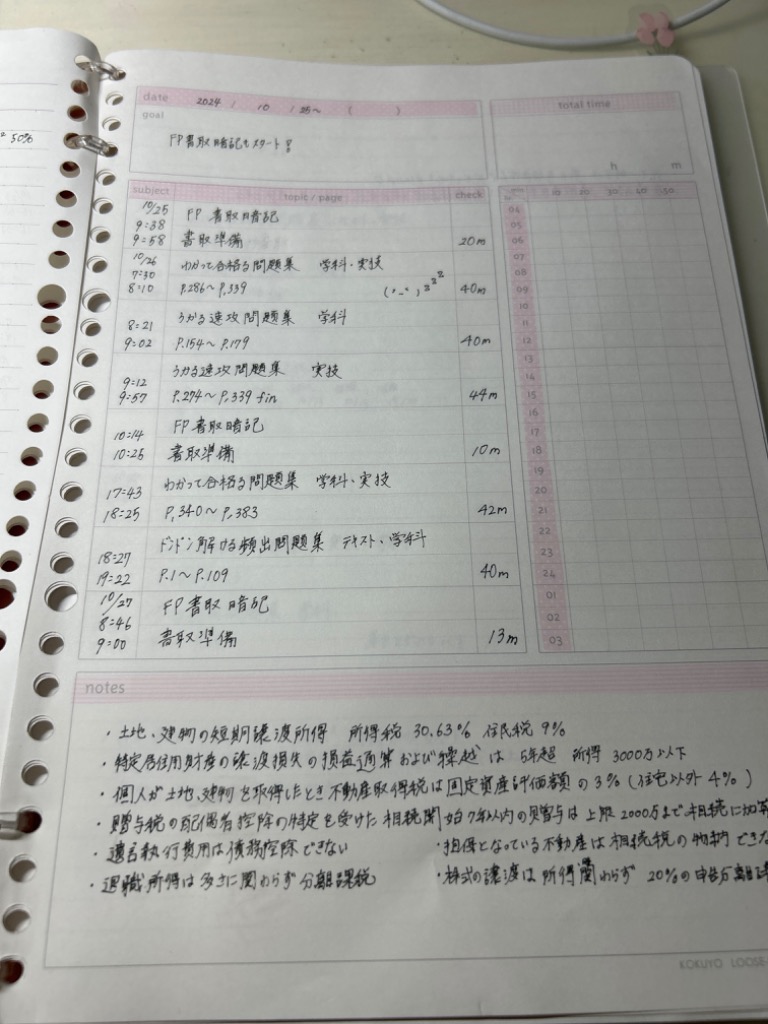 50%
date 2024 / 10 / 25〜 ( )
total time
goal
FP書取暗記もスタート!
h m
subject topic / page check
10 20 30 40 50
10/25 FP 書取暗記
9:38
9:58 書取準備 20m
10/26 わかって合格る問題集 学科・実技
7:30
8:10 P.286〜P.339 (*-*)zzz 40m
8:21 うかる速攻問題集 学科
9:02 P.154〜P.179 40m
うかる速攻問題集 実技
9:12
9:57 P.274〜P.339 fin 44m
10:14 FP書取暗記
10:25 書取準備 10m
17:43 わかって合格る問題集 学科、実技
18:25 P.340〜P.383 42m
18:27 ドンドン解ける頻出問題集 テキスト、学科
19:22 P.1〜P.109 40m
10/27 FP書取暗記
8:46
9:00 書取準備 13m
04
05
06
07
08
09
10
11
12
13
14
15
16
17
18
19
20
21
22
23
24
01
02
03
notes
・土地、建物の短期譲渡所得 所得税 30.63% 住民税 9%
・特定居住用財産の譲渡損失の損益通算および繰越は 5年超 所得 3000万以下
・個人が土地、建物を取得したとき不動産取得税は固定資産評価額の3%(住宅以外4%)
・贈与税の配偶者控除の特定を受けた相続開始7年以内の贈与は上限2000万まで相続に加算
・遺言執行費用は債務控除できない ・担保となっている不動産は相続税の物納できな
・退職所得は多さに関わらず分離課税 ・株式の譲渡は所得関わらず 20%の申告分離課
KOKUYO LOOSE-